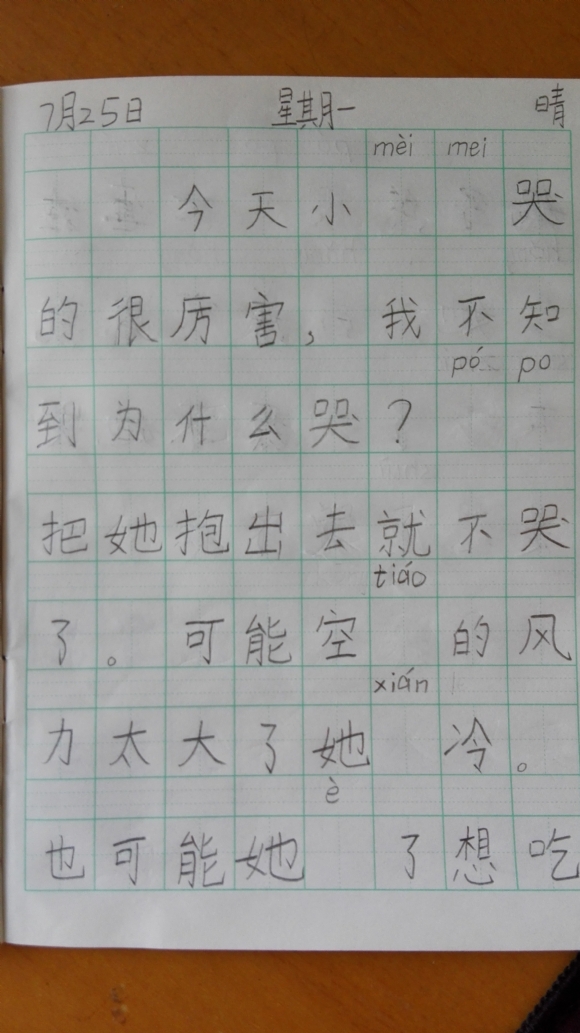 7月25日 星期一 晴
mèi mei
今天小 哭
的很厉害，我不知
pó po
到为什么哭？
把她抱出去就不哭
tiáo
了。可能空 的风
xián
力太大了她 冷。
è
也可能她 了想吃